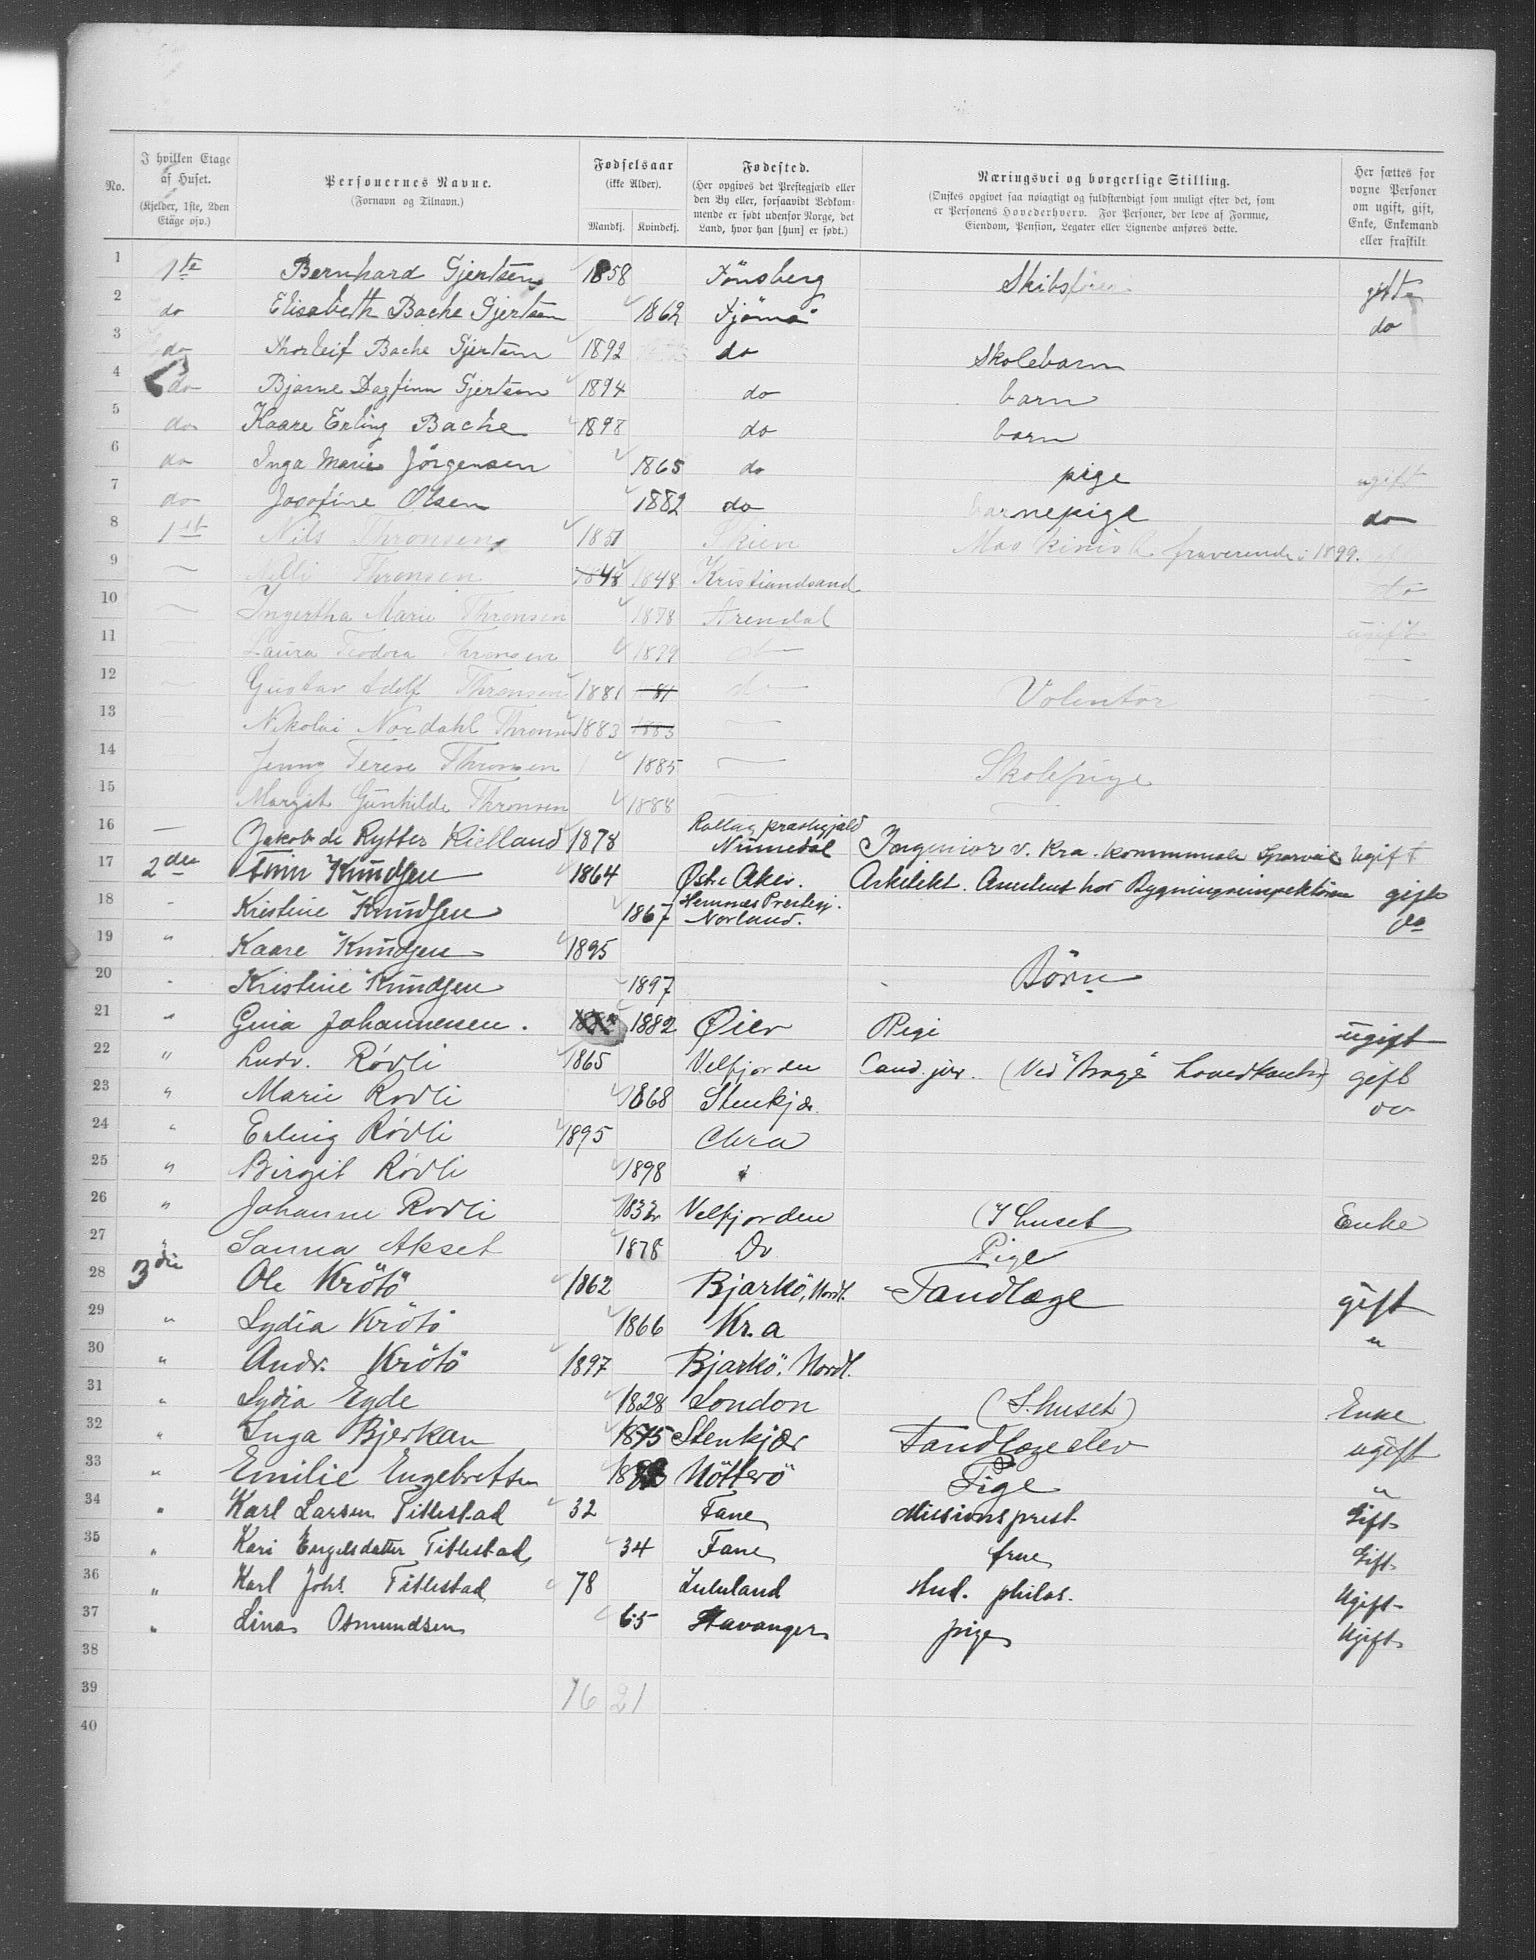 No. I hvilken Etage af Huset. (Kjelder, 1ste, 2den Etage osv.) Personernes Navne. (Fornavn og Tilnavn.) Fødselsaar (ikke Alder). Mandkj. Kvindekj. Fødested. (Her opgives det Prestegjæld eller den By eller, forsaavidt Vedkommende er født udenfor Norge, det Land, hvor han [hun] er født.) Næringsvei og borgerlige Stilling. (Ønskes opgivet saa nøiagtigt og fuldstændigt som muligt efter det, som er Personens Hovederhverv. For Personer, der leve af Formue, Eiendom, Pension, Legater eller Lignende anføres dette. Her sættes for voxne Personer om ugift, gift, Enke, Enkemand eller fraskilt
1 1te Bernhard Gjertsen 1858 Tönsberg gift
2 do Elisabeth Bache Gjertsen 1862 Tjömö do
3 do Thorleif Bache Gjertsen 1892 do Skolebarn
4 do Bjarne Dagfinn Gjertsen 1894 do barn
5 do Kaare Erling Bache 1898 do barn
6 do Inga Marie Jörgensen 1865 do pige ugift
7 do Josefine Olsen 1882 do barnepige do
8 1st Nils Thronsen 1851 Skien Maskinist fraverende i 1899.
9 Thronsen 1848 1848 Kristiandsand do
10 Ingertha Marie Thronsen 1878 Arendal ugift
11 Laura Teodora Thronsen 1879
12 Gustav Adolf Thronsen 1881 81 do Volontör
13 Nikolai Nordahl Thronsen 1883 1883
14 Jenny Terese Thronsen 1885 Skolepige
15 Margit Gunhilde Thronsen 1888
16 — Jakob de Rytter Kielland 1878 Rollag præstegjæld Numedal Ingeniør v. Kra. kommunale Sporvei Ugift
17 2den Knudsen 1864 Østre Aker. Arkitekt. Assistent hos Bygningsinspektøren gift
18 - Kristine Knudsen 1867 Hemnæs Prestegj. Norland. do
19 " Kaare Knudsen 1895
20 - Kristine Knudsen 1897 Börn
21 " Gina Johannesen. 1882 Øier Pige ugift
22 " Ludv. Rödli 1865 Velfjorden Cand. jur. (Ved "Brage" hovedkontor) gift
23 " Marie Rodli 1868 Stenkjær do
24 " Erling Rödli 1895 Chra
25 " Birgit Rödli 1898 "
26 " Johanne Rodli 1832 Velfjorden (I huset Enke
27 " Sanna Akset 1878 Do Pige
28 3die Ole Krötö 1862 Bjarkö, Nordl. Tandlæge gift
29 " Lydia Krötö 1866 Kr.a "
30 " Andr. Krötö 1897 Bjarkö, Nordl.
31 " Lydia Egde 1828 London (I huset) Enke
32 " Inga Bjerkan 1875 Stenkjær Tandlægeelev ugift
33 " Emilie Engebretsen Nötterö Pige "
34 " Karl Larsen Titlestad 32 Fane Missionsprest Gift
35 " Kari Engelsdatter Titlestad 34 Fane frue Gift
36 " Karl Johs. Titlestad 78 Zululand stud. philos. Ugift
37 " Lina Osmundsen 65 Stavanger pige Ugift
38
39 16 21
40